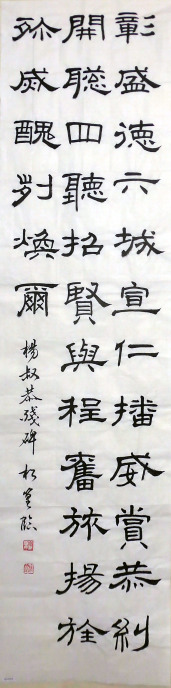 彰盛德六城宣仁播威賞恭糾
開聡四聽招賢與程奮旅揚旌
殄威醜剋煥爾
楊叔恭殘碑 松臨